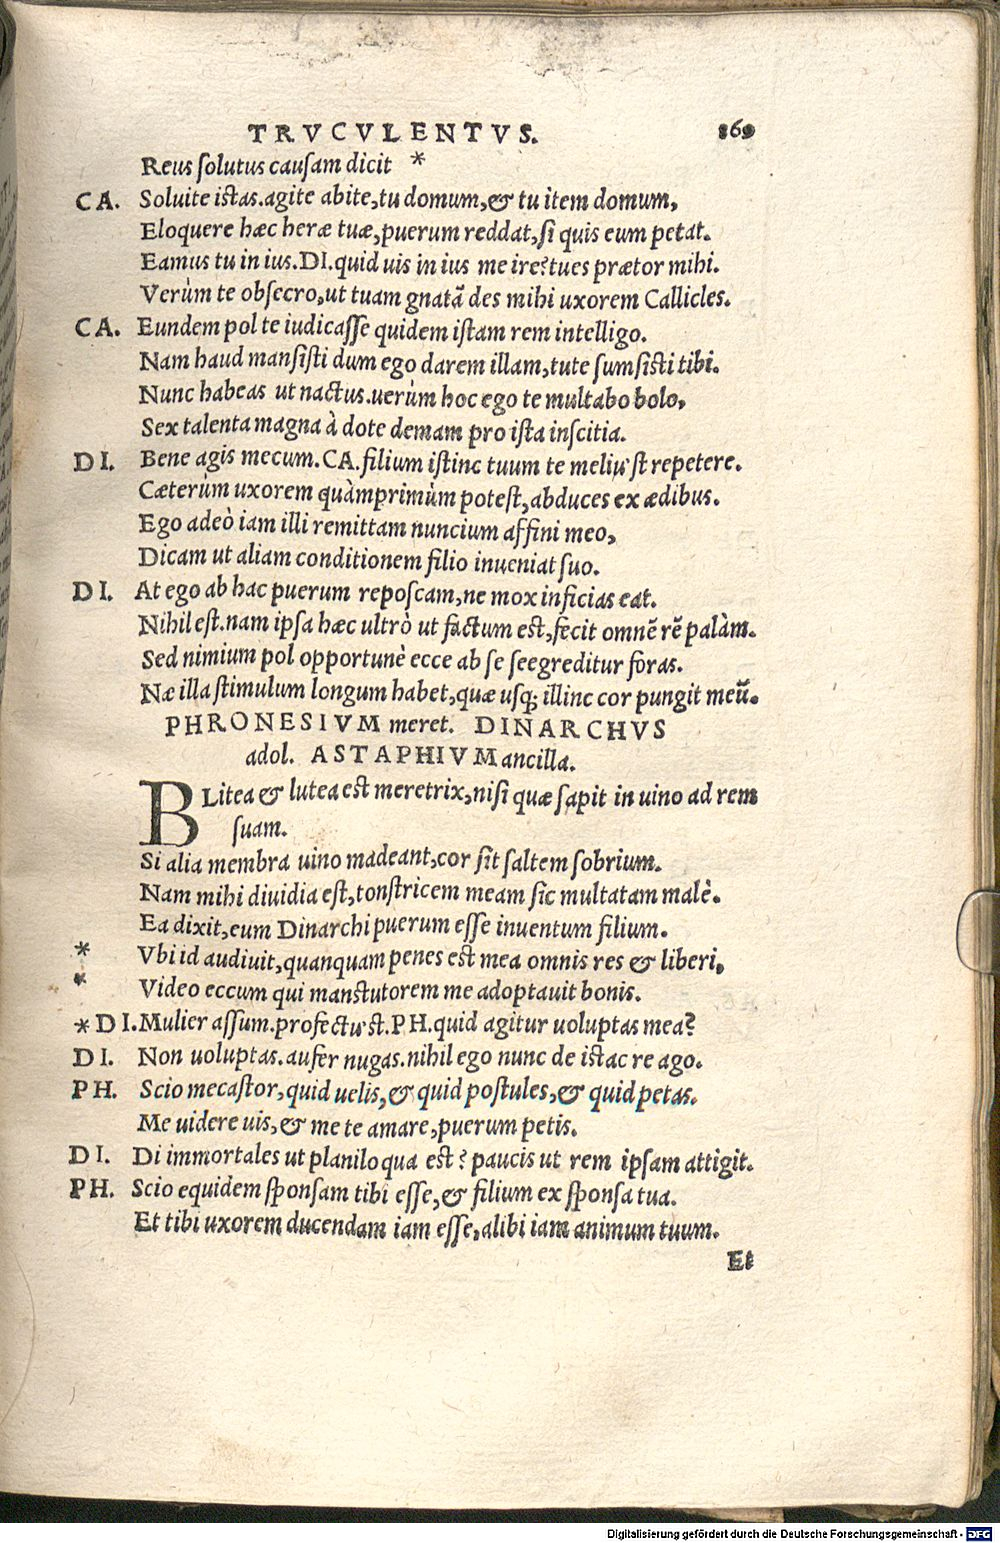 TRVCVLENTVS. 169
Reus solutus causam dicit *
CA. Soluite istas.agite abite,tu domum,& tu item domum,
Eloquere hæc heræ tuæ,puerum reddat,si quis eum petat.
Eamus tu in ius.DI.quid uis in ius me ire?tues prætor mihi.
Verùm te obsecro,ut tuam gnatā des mihi uxorem Callicles.
CA. Eundem pol te iudicasse quidem istam rem intelligo.
Nam haud mansisti dum ego darem illam,tute sumsisti tibi.
Nunc habeas ut nactus.uerùm hoc ego te multabo bolo,
Sex talenta magna à dote demam pro ista inscitia.
DI. Bene agis mecum.CA.filium istinc tuum te meliu'st repetere.
Cæterùm uxorem quàmprimùm potest,abduces ex ædibus.
Ego adeò iam illi remittam nuncium affini meo,
Dicam ut aliam conditionem filio inueniat suo.
DI. At ego ab hac puerum reposcam,ne mox inficias eat.
Nihil est.nam ipsa hæc ultrò ut factum est,fecit omnē rē palàm.
Sed nimium pol opportunè ecce ab se seegreditur foras.
Næ illa stimulum longum habet,quæ usq; illinc cor pungit meū.
PHRONESIVM meret. DINARCHVS
adol. ASTAPHIVM ancilla.
BLitea & lutea est meretrix,nisi quæ sapit in uino ad rem
suam.
Si alia membra uino madeant,cor sit saltem sobrium.
Nam mihi diuidia est,tonstricem meam sic multatam malè.
Ea dixit,eum Dinarchi puerum esse inuentum filium.
* Vbi id audiuit,quanquam penes est mea omnis res & liberi,
* Video eccum qui manstutorem me adoptauit bonis.
* DI.Mulier assum.profectu'st.PH.quid agitur uoluptas mea?
DI. Non uoluptas.aufer nugas.nihil ego nunc de istac re ago.
PH. Scio mecastor,quid uelis,& quid postules,& quid petas.
Me uidere uis,& me te amare,puerum petis.
DI. Di immortales ut planiloqua est? paucis ut rem ipsam attigit.
PH. Scio equidem sponsam tibi esse,& filium ex sponsa tua.
Et tibi uxorem ducendam iam esse,alibi iam animum tuum.
Et
Digitalisierung gefördert durch die Deutsche Forschungsgemeinschaft - DFG